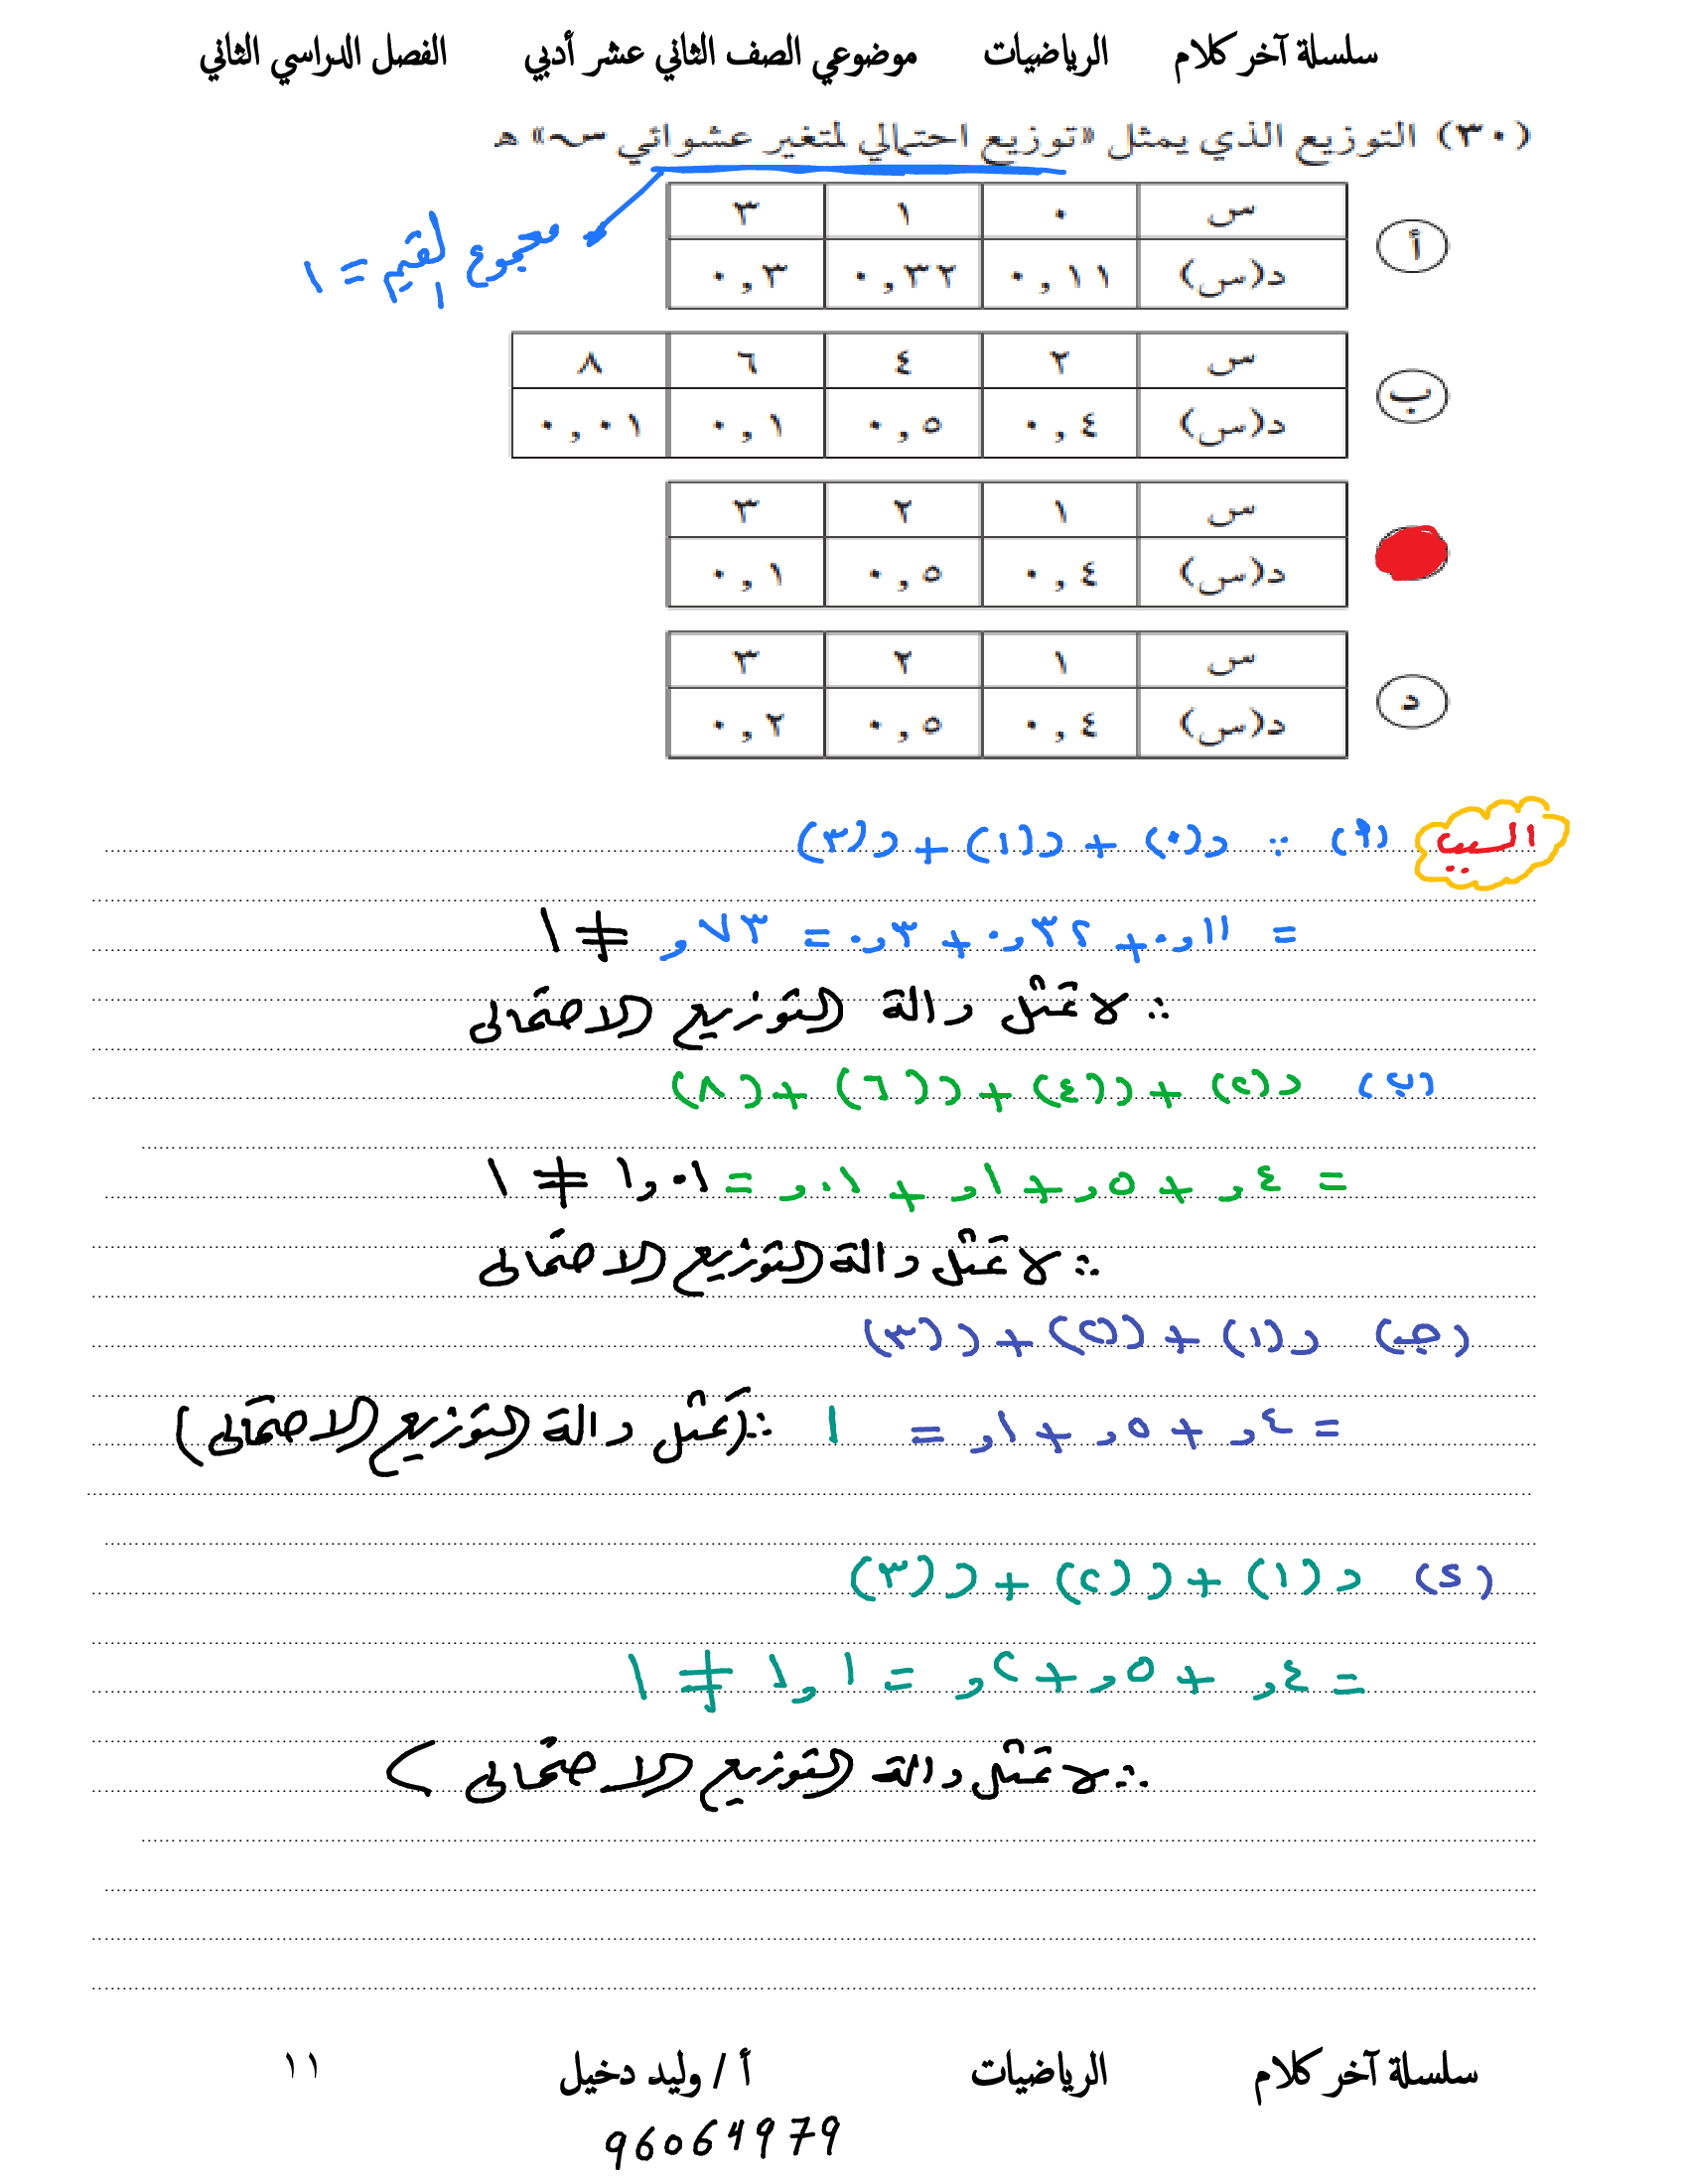 سلسلة آخر كلام الرياضيات موضوعي الصف الثاني عشر أدبي الفصل الدراسي الثاني
(٣٠) التوزيع الذي يمثل «توزيع احتمالي لمتغير عشوائي س» ه
مجموع القيم = ١
أ
س ٠ ١ ٣
د(س) ٠,١١ ٠,٣٢ ٠,٣
ب
س ٢ ٤ ٦ ٨
د(س) ٠,٤ ٠,٥ ٠,١ ٠,٠١
س ١ ٢ ٣
د(س) ٠,٤ ٠,٥ ٠,١
د
س ١ ٢ ٣
د(س) ٠,٤ ٠,٥ ٠,٢
السبب (أ) ∵ د(٠) + د(١) + د(٣)
= ٠,١١ + ٠,٣٢ + ٠,٣ = ,٧٣ ≠ ١
∴ لا تمثل دالة التوزيع الاحتمالى
(ب) د(٢) + د(٤) + د(٦) + د(٨)
= ,٤ + ,٥ + ,١ + ,٠١ = ١,٠١ ≠ ١
∴ لا تمثل دالة التوزيع الاحتمالى
(جـ) د(١) + د(٢) + د(٣)
= ,٤ + ,٥ + ,١ = ١ ∴ (تمثل دالة التوزيع الاحتمالى)
(د) د(١) + د(٢) + د(٣)
= ,٤ + ,٥ + ,٢ = ١,١ ≠ ١
∴ لا تمثل دالة التوزيع الاحتمالى )
سلسلة آخر كلام الرياضيات أ / وليد دخيل ١١
96064979